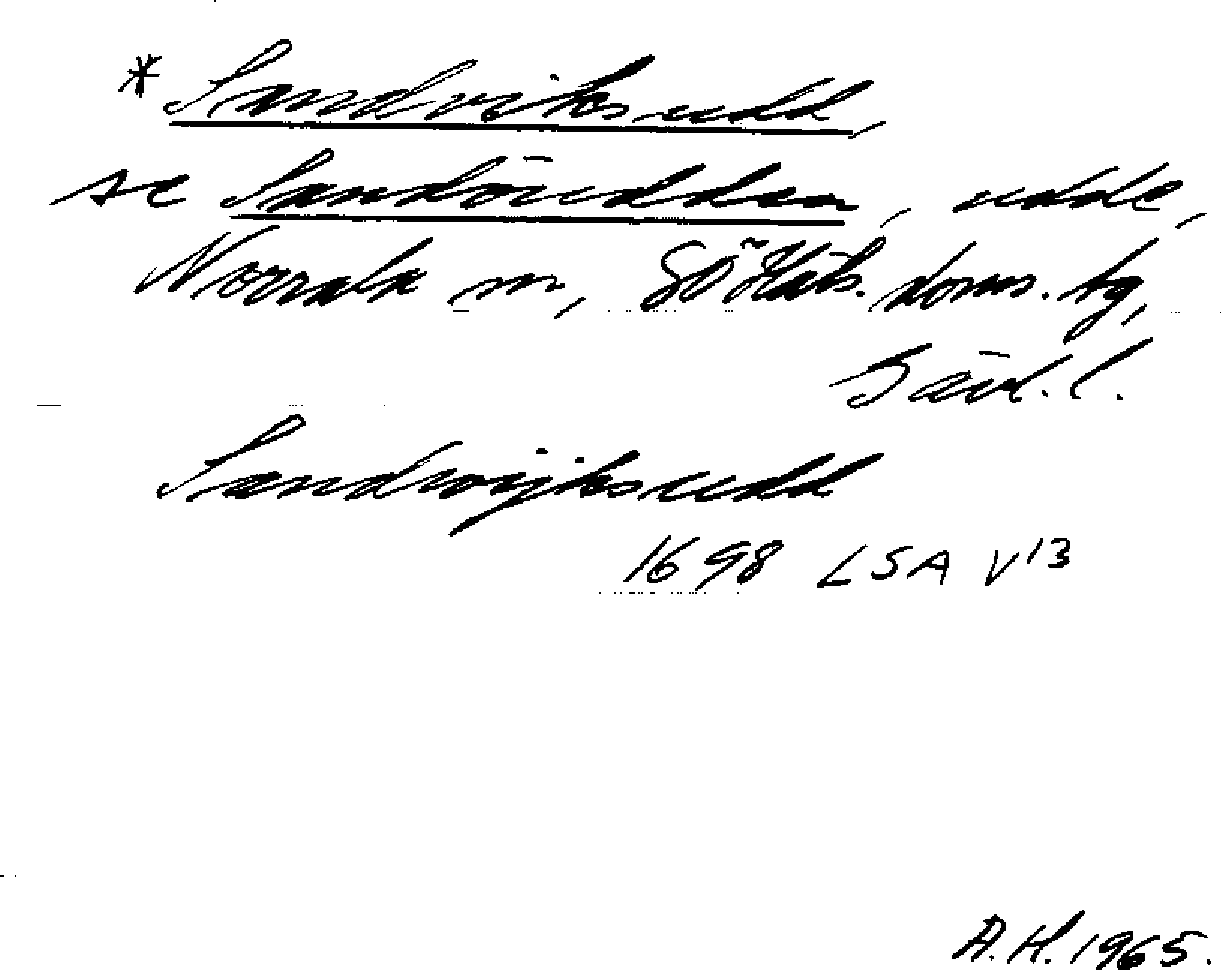 *Sandviksudd,
se Sandöudden, udde,
Norrala sn, SöHäls. doms. tg,
Gävl. l.
Sandwijksudd
1698 LSA V13
A.H. 1965.